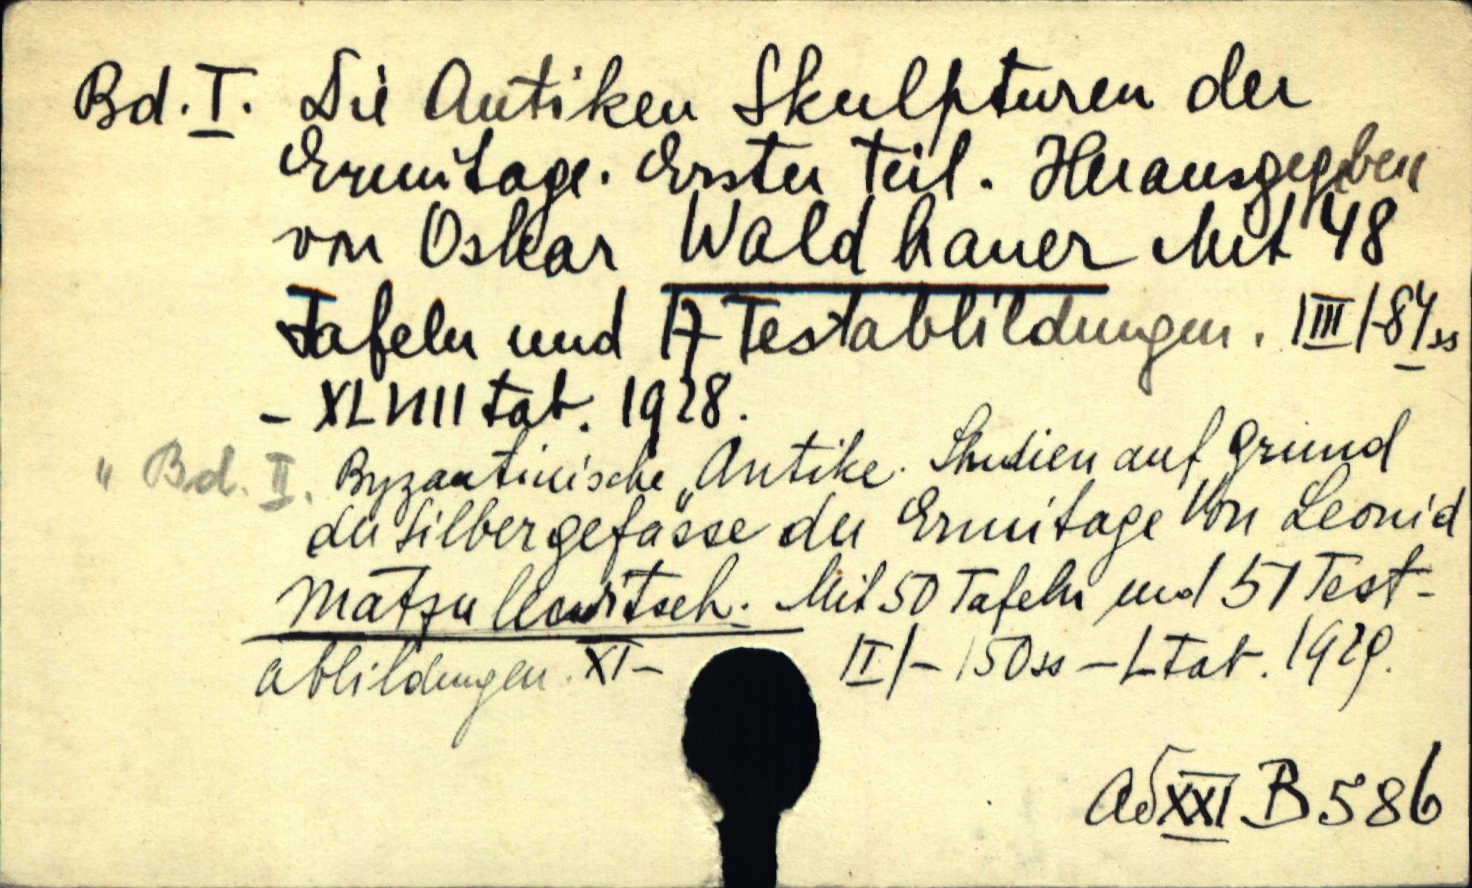 Bd. I. Die Antiken Skulpturen der
Ermitage. Erster Teil. Herausgegeben
von Oskar Waldhauer Mit 48
Tafeln und 17 Testabbildungen. |III|-84 ss
- XLVIII tab. 1928.
" Bd. II. Byzantinische Antike. Studien auf Grund
der Silbergefässe der Ermitage Von Leonid
Matzulewitsch. Mit 50 Tafeln und 51 Test-
abbildungen. XI - |II|- 150 ss - L Tab. 1929.
Ad XXI B 586